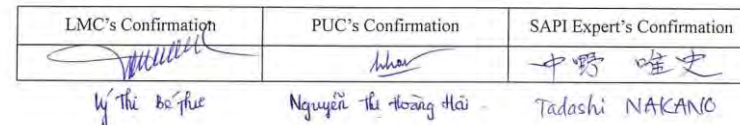 LMC's Confirmation PUC's Confirmation SAPI Expert's Confirmation
中野 唯史
Lý Thi Bé Nguyễn Thi Hoàng Hải Tadashi NAKANO